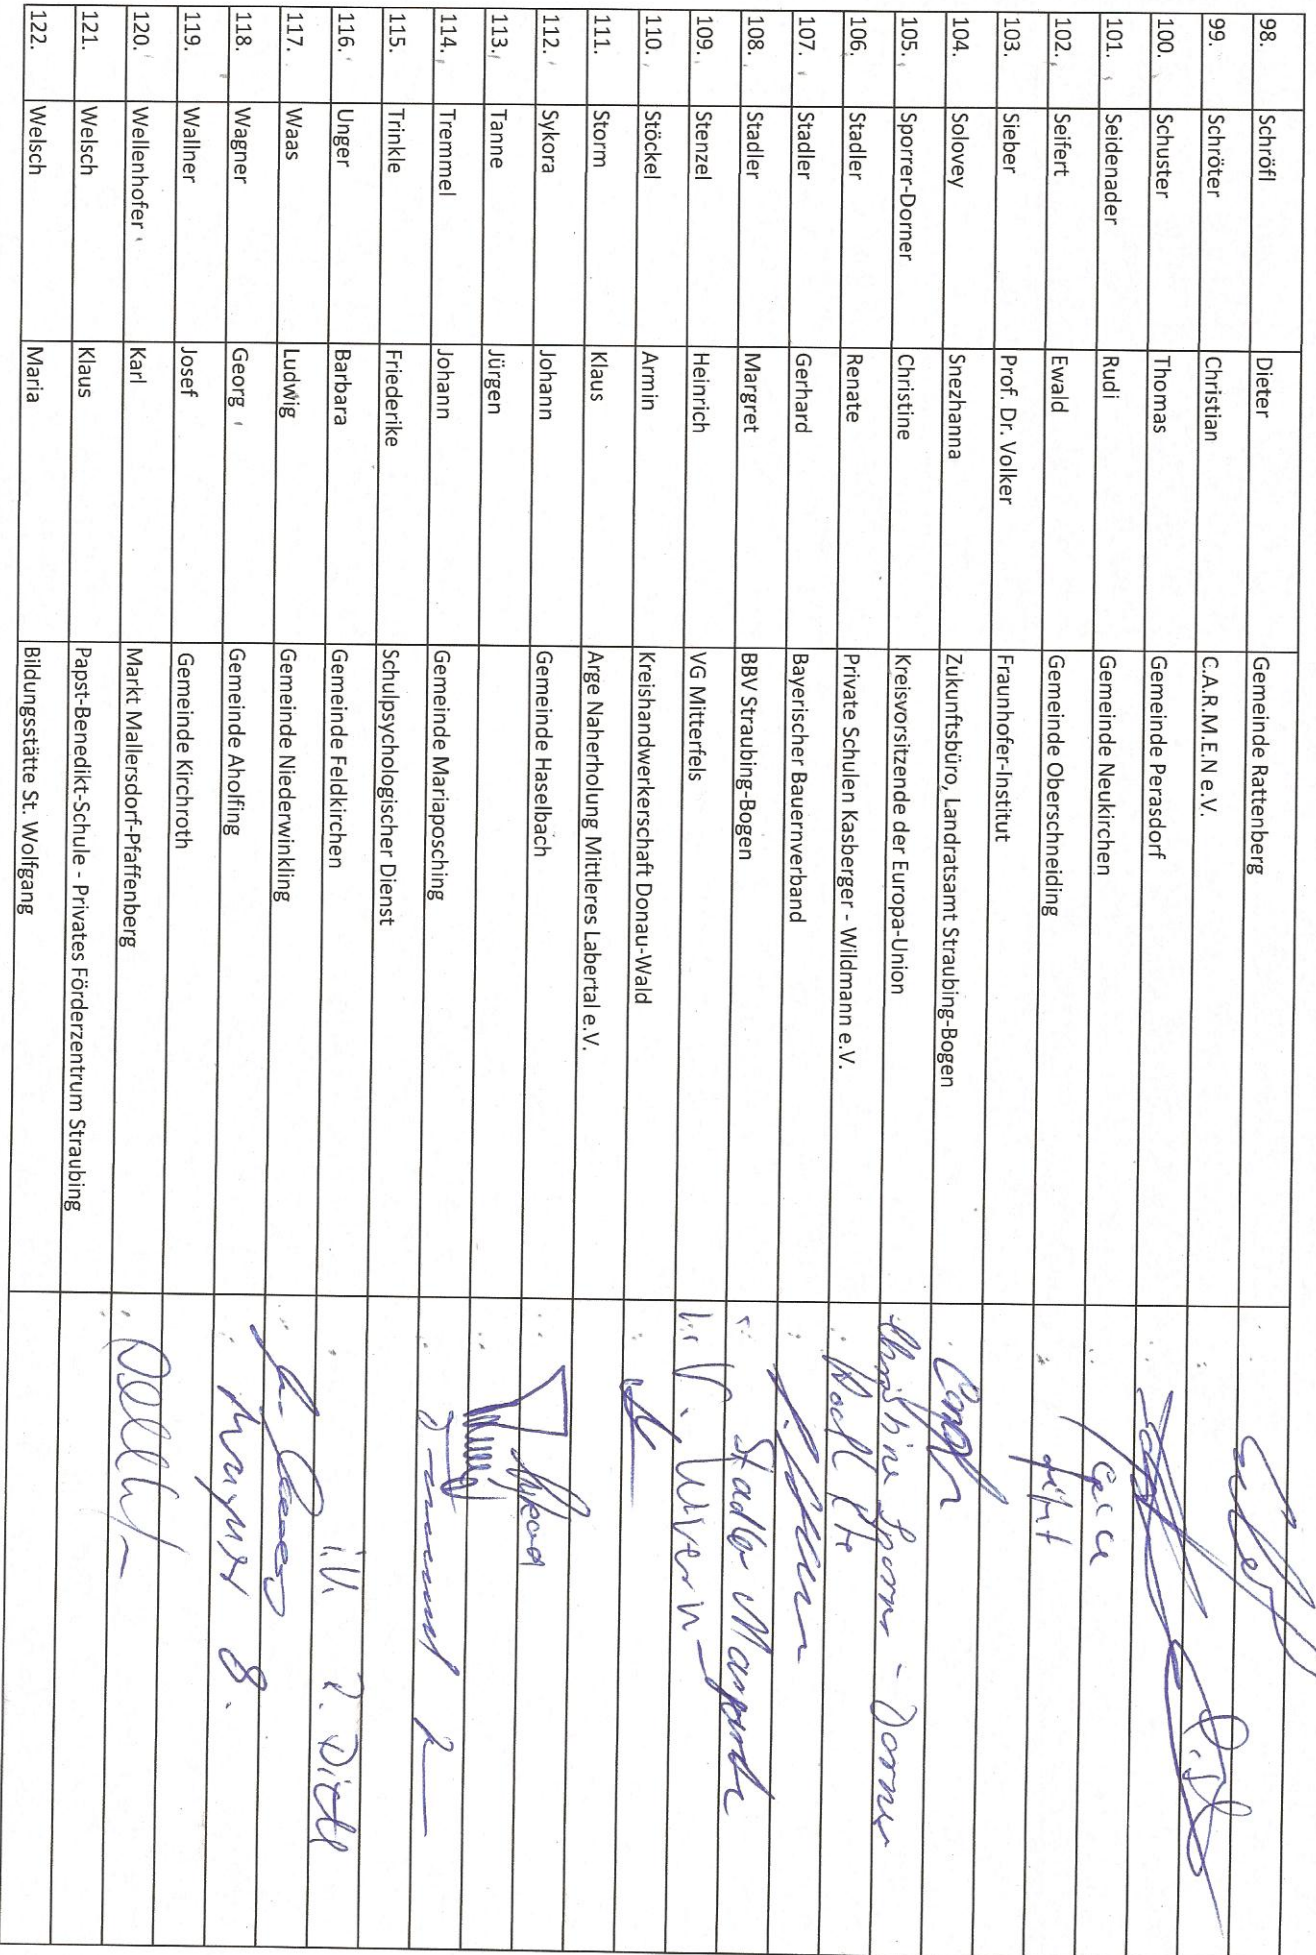 98. Schröfl Dieter Gemeinde Rattenberg
99. Schröter Christian C.A.R.M.E.N e.V.
100. Schuster Thomas Gemeinde Perasdorf
101. Seidenader Rudi Gemeinde Neukirchen
102. Seifert Ewald Gemeinde Oberschneiding
103. Sieber Prof. Dr. Volker Fraunhofer-Institut
104. Solovey Snezhanna Zukunftsbüro, Landratsamt Straubing-Bogen
105. Sporrer-Dorner Christine Kreisvorsitzende der Europa-Union Christine Sporrer - Dorner
106. Stadler Renate Private Schulen Kasberger - Wildmann e.V.
107. Stadler Gerhard Bayerischer Bauernverband
108. Stadler Margret BBV Straubing-Bogen Stadler Margret
109. Stenzel Heinrich VG Mitterfels
110. Stöckel Armin Kreishandwerkerschaft Donau-Wald
111. Storm Klaus Arge Naherholung Mittleres Labertal e.V.
112. Sykora Johann Gemeinde Haselbach
113. Tanne Jürgen
114. Tremmel Johann Gemeinde Mariaposching
115. Trinkle Friederike Schulpsychologischer Dienst
116. Unger Barbara Gemeinde Feldkirchen i.V.
117. Waas Ludwig Gemeinde Niederwinkling
118. Wagner Georg Gemeinde Aholfing
119. Wallner Josef Gemeinde Kirchroth
120. Wellenhofer Karl Markt Mallersdorf-Pfaffenberg
121. Welsch Klaus Papst-Benedikt-Schule - Privates Förderzentrum Straubing
122. Welsch Maria Bildungsstätte St. Wolfgang